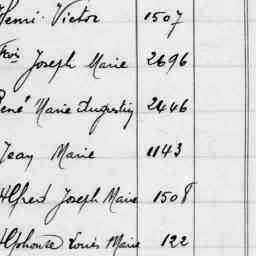 Henri Victor 1507
Fois Joseph Marie 2696
René Marie Augustin 2446
Jean Marie 1143
Alfred Joseph Marie 1508
Alphonse Louis Marie 122